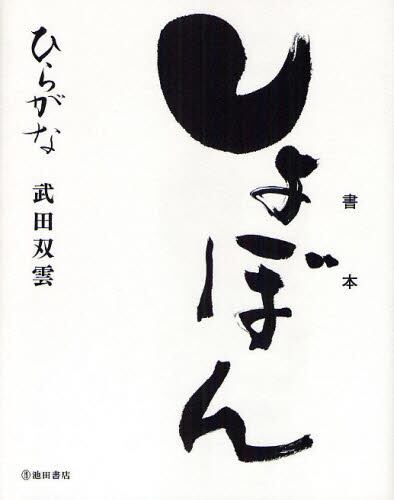 書本
しょぼん
ひらがな
武田双雲
池田書店